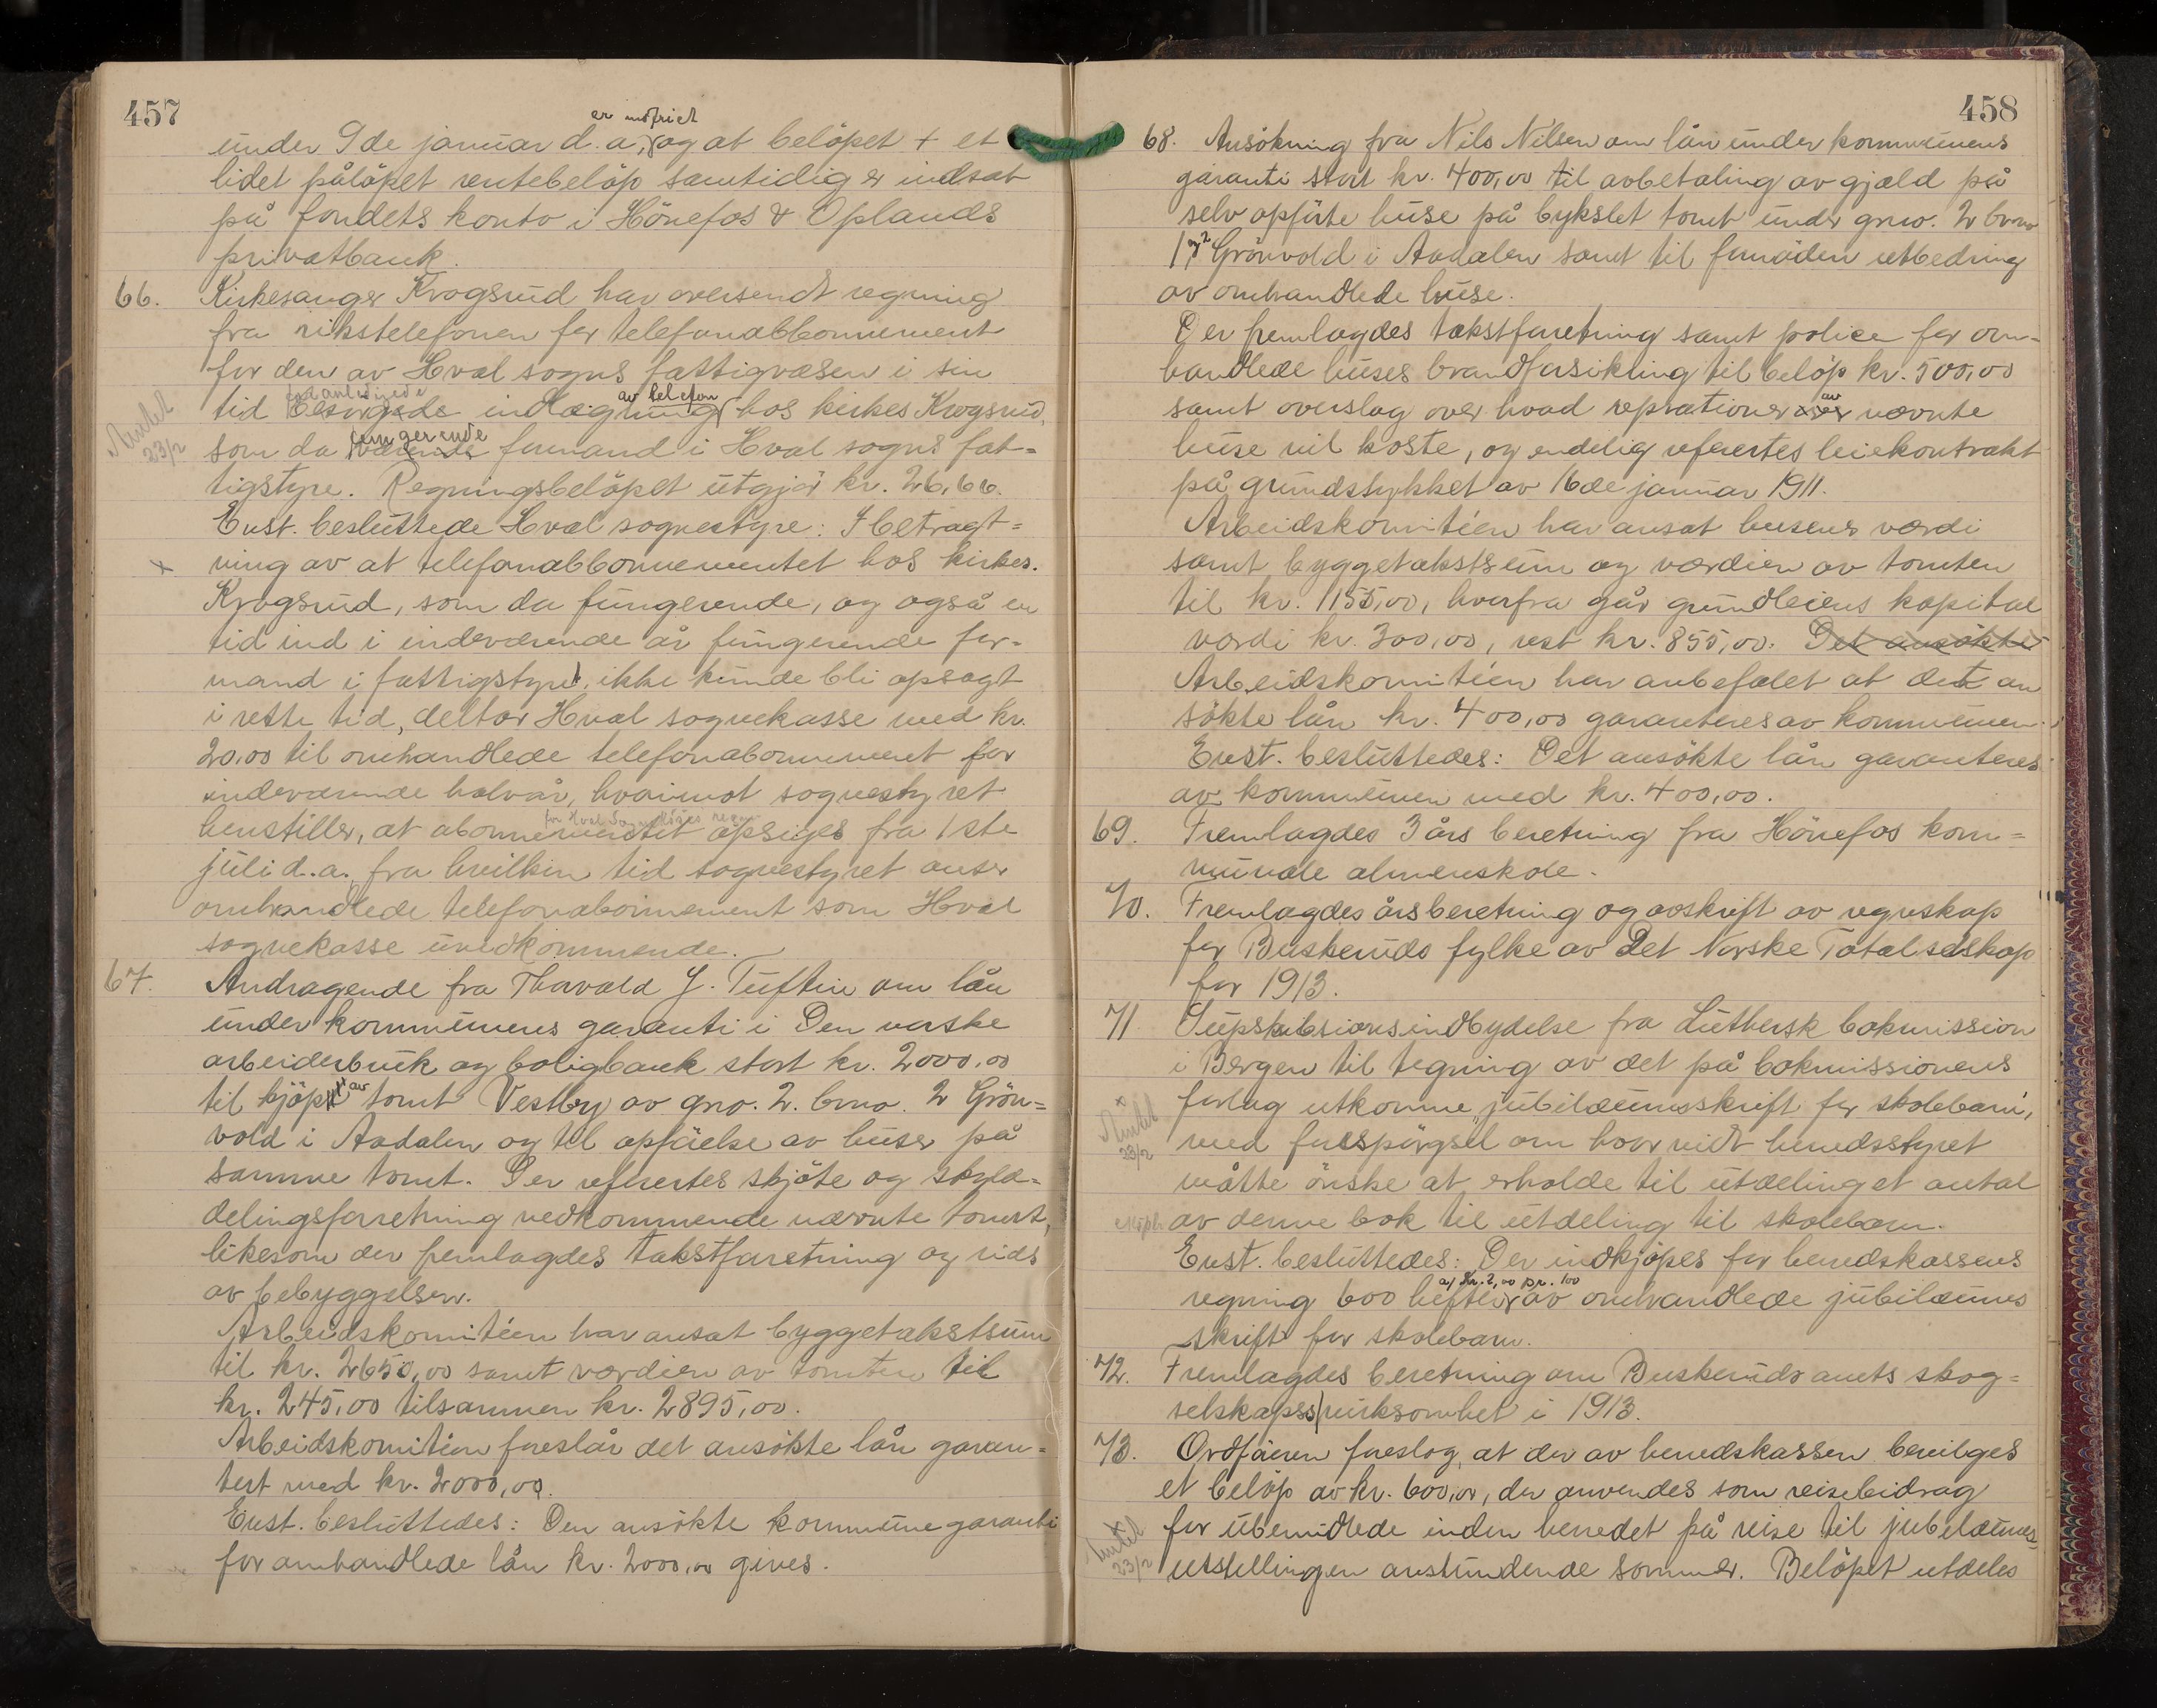 457
er indfriet
under 9de januar d.a., og at belöpet + et
litet pålöpet rentebelöp samtidig er indsat
på fondets konto i Hönefos & Oplands
privatbank.
66. Kirkesanger Krogsrud har oversendt regning
fra rikstelefonen for telefonabbonnement
for den av Hval sogns fattigvæsen i sin
foranledigede av telefon
tid besørgede indlægning hos kirkes. Krogsrud,
Anmeldt 23/2
fungerende
som da værende formand i Hval sogns fat=
tigstyre. Regningsbelöpet utgjör kr. 26,66.
Enst. besluttede Hval sognestyre: I betragt=
x ning av at telefonabbonnementet hos kirkes.
Krogsrud, som da fungerende, og også en
tid ind i indeværende år fungerende for-
mand i fattigstyret, ikke kunde bli opsagt
i rette tid, deltar Hval sognekasse med kr.
20,00 til omhandlede telefonabonnement for
indeværende halvår, hvorimot sognestyret
for Hval Sognekasses regn.
henstiller, at abonnementet opsiges fra 1ste
juli d.a., fra hvilken tid sognestyret anser
omhandlede telefonabonnement som Hval
sognekasse uvedkommende.
67. Andragende fra Thorvald J. Tuftin om lån
under kommunens garanti i Den norske
arbeiderbruk og boligbank stort kr. 2000,00
til kjöp av tomt Vestby av gno. 2. bno. 2 Grön=
vold i Aadalen og til opförelse av huser på
samme tomt. Der refertes skjöte og skyld=
delingsforretning vedkommende nævnte tomt,
likesom der fremlagdes takstforretning og rids
av bebyggelsen.
Arbeidskomitéen har ansat byggetakstsum
til kr. 2650,00 samt værdien av tomten til
kr. 245,00 tilsammen kr. 2895,00.
Arbeidskomitéen foreslår det ansökte lån garan=
tert med kr. 2000,00.
Enst. besluttedes: Den ansökte kommunegaranti
for omhandlede lån kr. 2000,00 gives.
458
68. Ansökning fra Nils Nilsen om lån under kommunens
garanti stort kr. 400,00 til avbetaling av gjæld på
selv opförte huse på bykslet tomt under gno. 2 bno
1 og 2 Grönvold i Aadalen samt til fornöden utbedring
av omhandlede huse.
Der fremlagdes takstforretning samt police for om-
handlede huses brandforsikring til belöp kr. 500,00
av
samt overslag over hvad reprationer nævnte
huse vil koste, og endelig refertes leiekontrakt
på grundstykket av 16de januar 1911.
Arbeidskomitéen har ansat husenes værdi
samt byggetakstsum og værdien av tomten
til kr. 1155,00, hvorfra går grundleiens kapital
værdi kr. 300,00, rest kr. 855,00. Det ansökte
Arbeidskomitéen har anbefalet at det an
sökte lån kr. 400,00 garanteres av kommunen.
Enst. besluttedes: Det ansökte lån garanteres
av kommunen med kr. 400,00.
69. Fremlagdes 3 års beretning fra Hönefos kom=
munale almenskole.
70. Fremlagdes årsberetning og avskrift av regnskap
for Buskeruds fylke av Det Norske Totalselskap
for 1913.
71 Supskribsionsindbydelse fra Luthersk bokmission
i Bergen til tegning av det på bokmissionens
forlag utkomne „jubilæumsskrift for skolebarn",
x Anmeldt 23/2
med forespörgsel om hvorvidt herredsstyret
måtte önske at erholde til utdeling et antal
av denne bok til utdeling til skolebarn.
Enst. besluttedes: Der indkjöpes for herredskassens
a/ kr. 2,00 pr. 100
regning 600 hefter av omhandlede jubilæums
skrift for skolebarn.
72. Fremlagdes beretning om Buskeruds amts skog=
selskaps virksomhet i 1913.
73. Ordföreren foreslog, at der av herredskassen bevilges
et belöp av kr. 600,00, der anvendes som reisebidrag
for ubemidlede inden herredet på reise til jubelæums-
x Anmeldt 23/2
utstillingen anstundende sommer. Belöpet utdeles